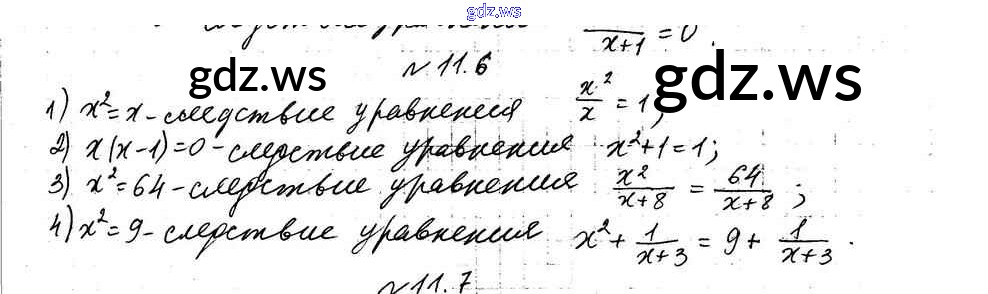 gdz.ws
следствие уравнения /x+1 = 0.
№11.6
gdz.ws gdz.ws
1) x²=x - следствие уравнения x²/x = 1;
2) x(x-1)=0 - следствие уравнения x²+1=1;
3) x²=64 - следствие уравнения x²/x+8 = 64/x+8;
4) x²=9 - следствие уравнения x² + 1/x+3 = 9 + 1/x+3.
№11.7